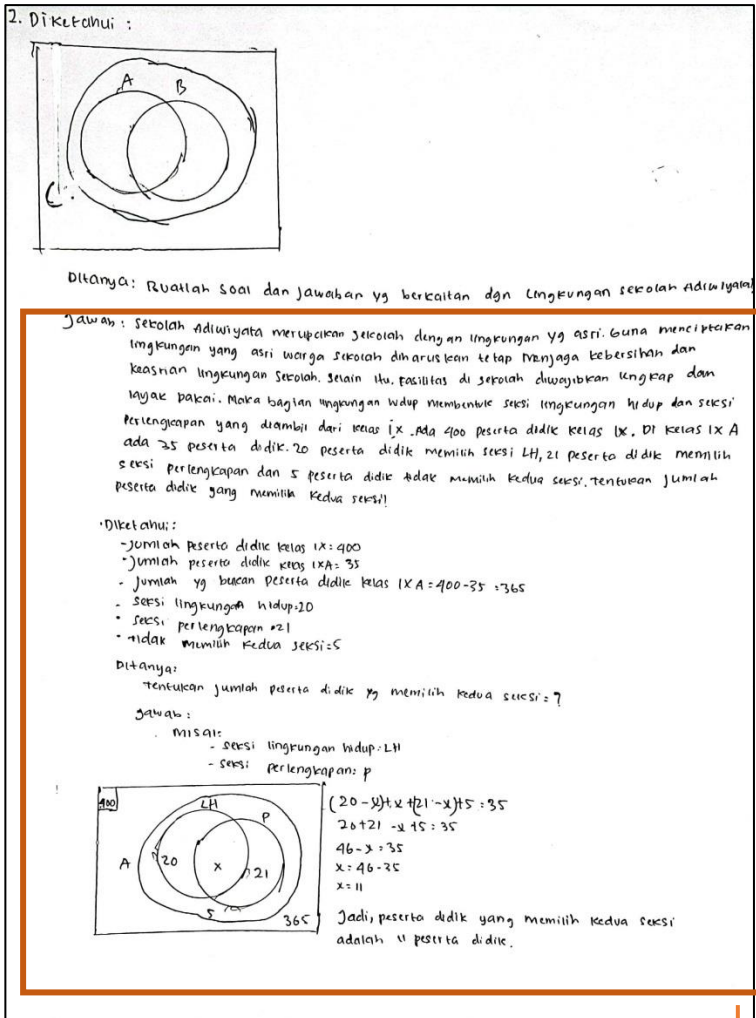 2. Diketahui :
A
B
C
Ditanya: Buatlah soal dan jawaban yg berkaitan dgn lingkungan sekolah Adiwiyata!
Jawab : Sekolah Adiwiyata merupakan sekolah dengan lingkungan yg asri. Guna menciptakan
lingkungan yang asri warga sekolah diharuskan tetap menjaga kebersihan dan
keasrian lingkungan sekolah. Selain itu, fasilitas di sekolah diwajibkan lengkap dan
layak pakai. Maka bagian lingkungan hidup membentuk seksi lingkungan hidup dan seksi
perlengkapan yang diambil dari kelas IX. Ada 400 peserta didik kelas IX. Di kelas IX A
ada 35 peserta didik. 20 peserta didik memilih seksi LH, 21 peserta didik memilih
seksi perlengkapan dan 5 peserta didik tidak memilih kedua seksi. Tentukan jumlah
peserta didik yang memilih kedua seksi!
• Diketahui:
- Jumlah peserta didik kelas IX : 400
- Jumlah peserta didik kelas IXA = 35
- Jumlah yg bukan peserta didik kelas IX A = 400-35 = 365
- seksi lingkungan hidup = 20
• seksi perlengkapan = 21
• tidak memilih kedua seksi = 5
Ditanya:
Tentukan jumlah peserta didik yg memilih kedua seksi = ?
Jawab :
misal:
- seksi lingkungan hidup : LH
- seksi perlengkapan : P
400
LH
P
A
20
x
21
5
365
(20-x)+x+(21-x)+5 = 35
20+21 -x +5 = 35
46-x = 35
x = 46-35
x = 11
Jadi, peserta didik yang memilih kedua seksi
adalah 11 peserta didik.